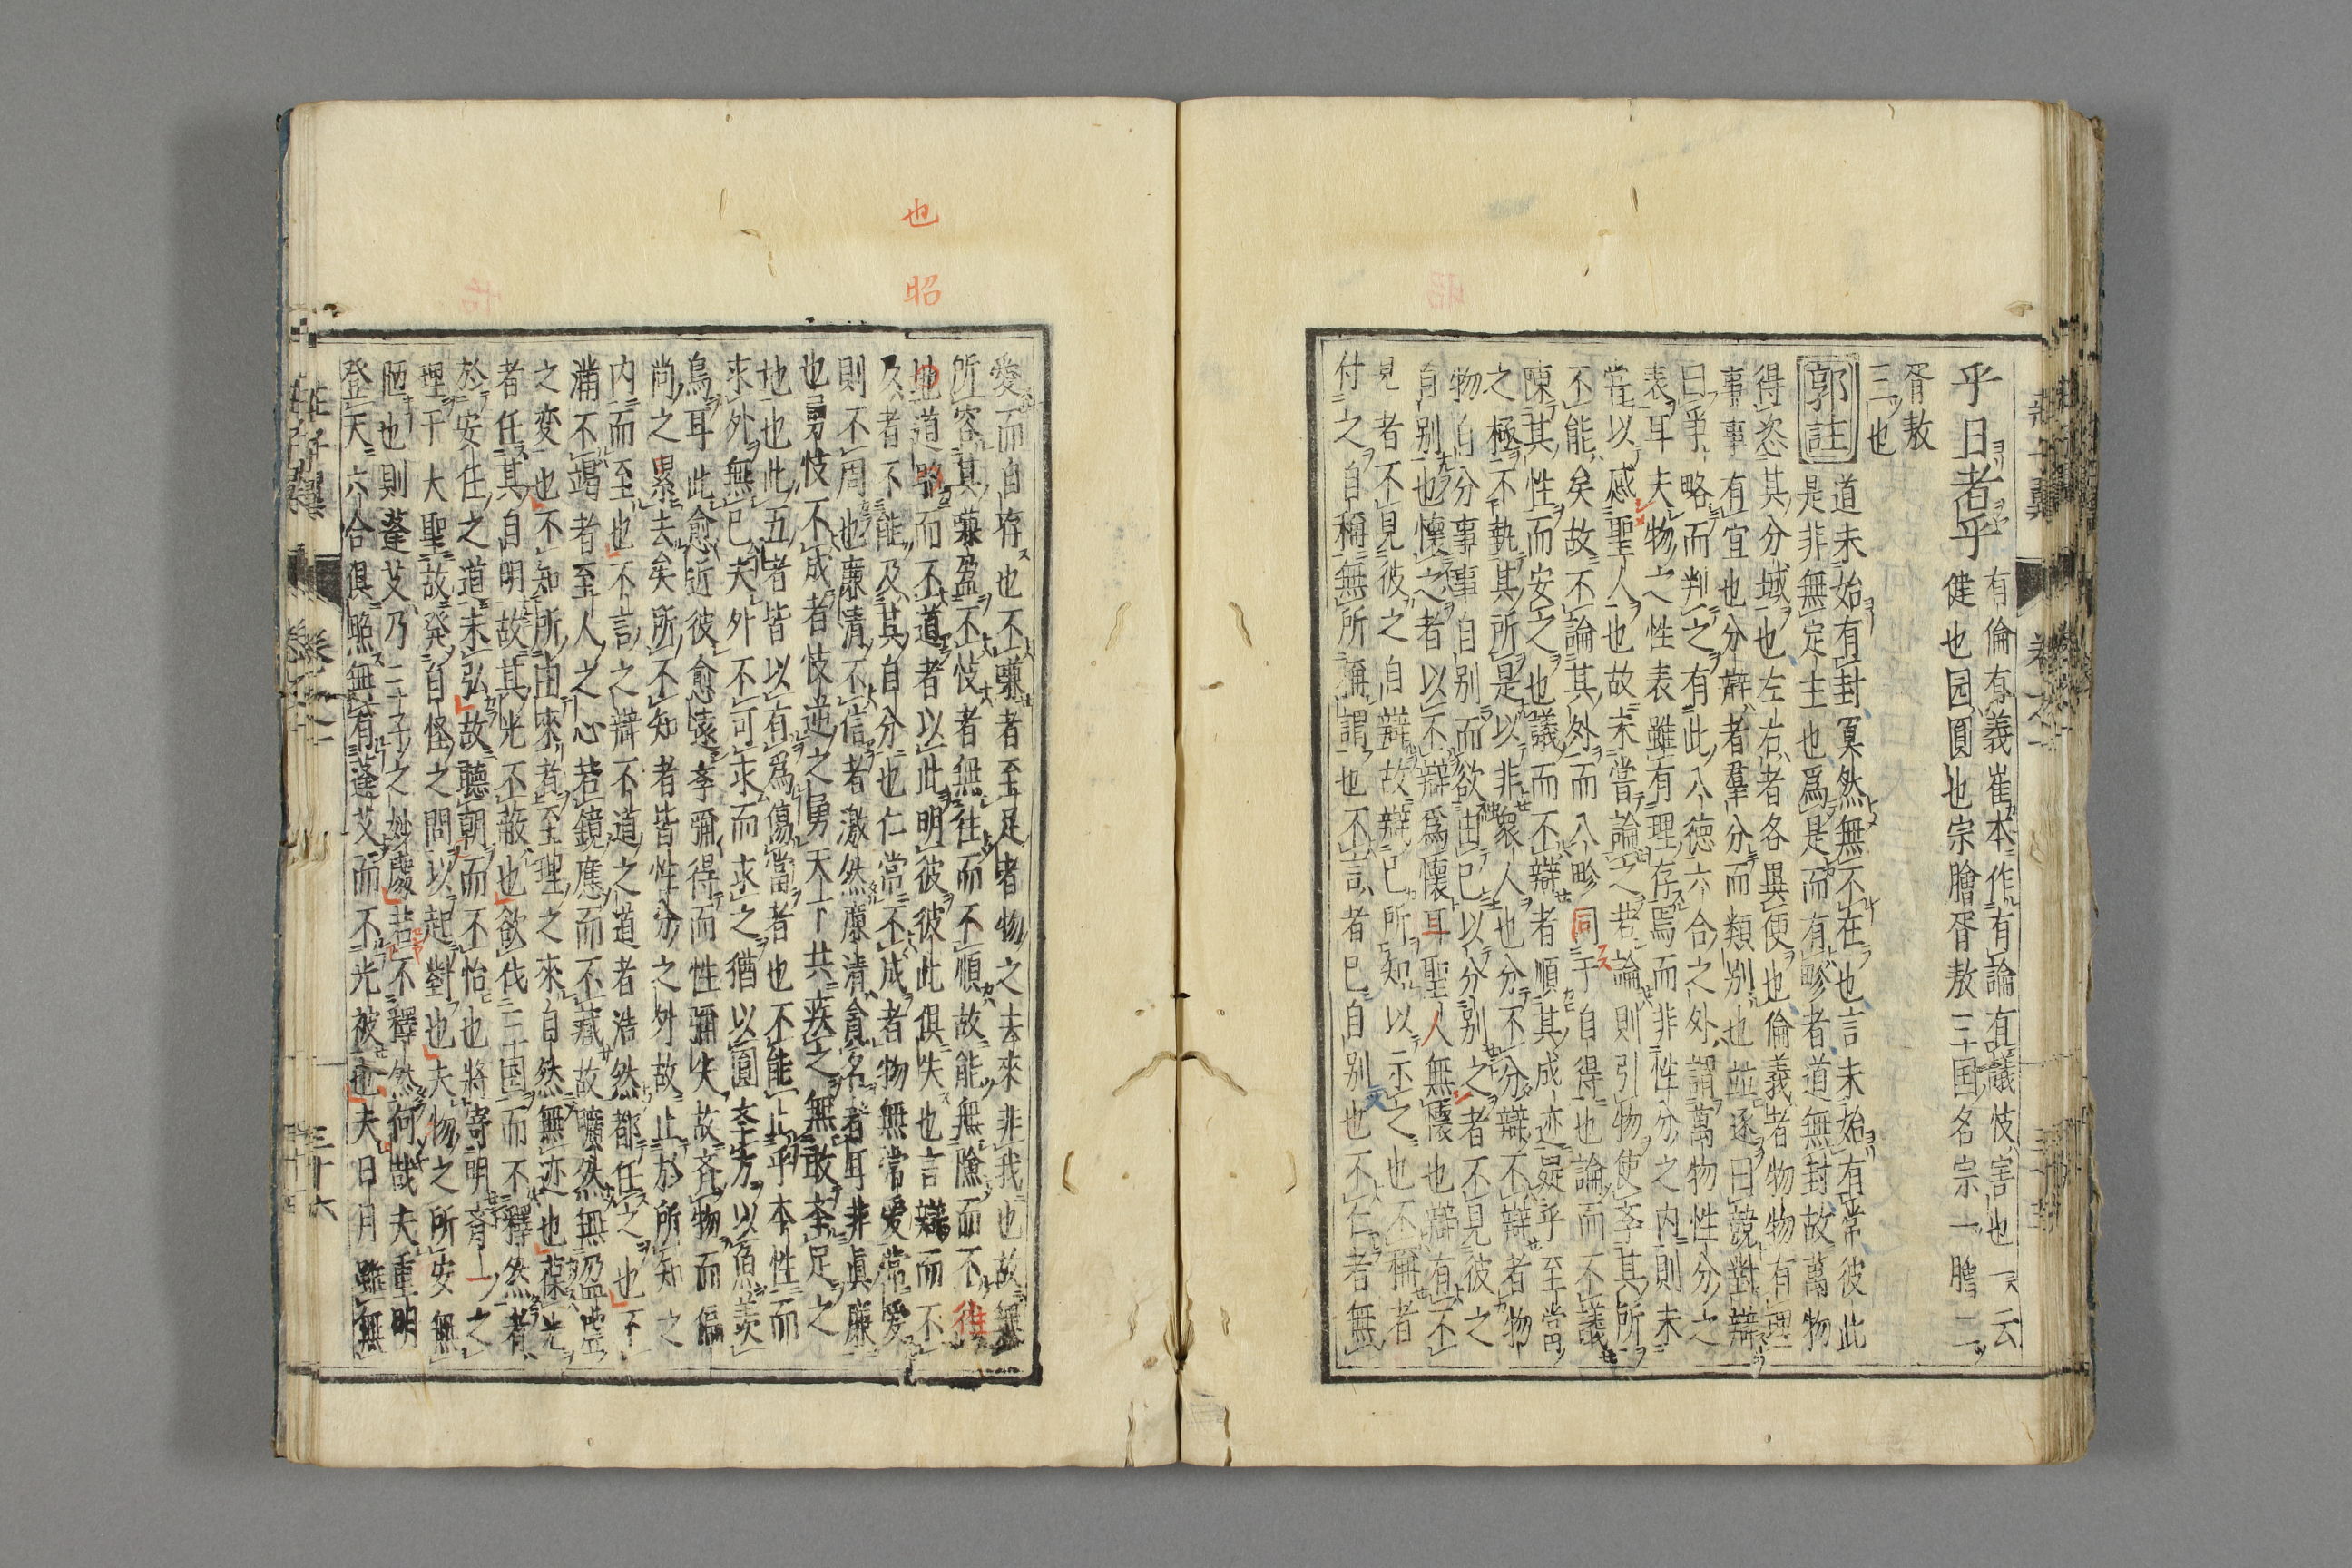 乎日者乎
有倫有義崔本作有論有議忮害也一云
健也园圓也宗膾胥敖三国名宗一膾二
胥敖
三也
郭註
道未始有封冥然無不在也言未始有常彼此
是非無定主也爲是而有畛者道無封故萬物
得恣其分域也左右者各異便也倫義者物物有理
事事有宜也分辯者羣分而類別也並逐曰競對辯
曰爭略而判之有此八徳六合之外謂萬物性分之
表耳夫物之性表雖有理存焉而非性分之内則未
甞以感聖人也故未嘗論之若論則引物使斈其所
不能矣故不論其外而八畛同于自得也論而不議
陳其性而安之也議而不辯者順其成迹㠜乎至當
之極不執其所是以非衆人也分不分辯不辯者物
物自分事事自別而欲由已以分別之者不見彼之
自别也懷之者以不辯爲懷耳聖人無懷也辯有不
見者不見彼之自辯故辯已所知以示之也不稱者
付之自稱無所稱謂也不言者已自別也不仁者無
莊子翼 卷之一
也
昭
愛而自存也不嗛者至足者物之去來非我也故無
所容其嗛盈不忮者無往而不順故能無險而不徃
地道昭而不道者以此明彼彼此俱失也言辯而不
及者不能及其自分也仁常不成者物無常愛常愛
則不周也廉清不信者激然廉清貪名者耳非眞廉
也勇忮不成者忮逆之勇天下共疾之無敢举足之
地也此五者皆以有爲傷當者也不能止乎本性而
求外無已夫外不可求而求之猶以圓斈方以魚羨
鳥耳此愈近彼愈遠斈彌得而性彌失故斉物而偏
尚之累去矣所不知者皆性分之外故止於所知之
内而至也不言之辯不道之道者浩然都任之也不
滿不竭者至人之心若鏡應而不藏故曠然無盈虛
之変也不知所由來者至理之來自然無迹也葆光
者任其自明故其光不蔽也欲伐三国而不釋然者
於安任之道未弘故聽朝而不怡也將寄明斉一之
理于大聖故発自怪之問以起對也夫物之所安無
陋也則蓬艾乃三子之妙處若不釋然何哉夫重明
登天六合俱照無有蓬艾而不光被也夫日月雖無
莊子翼 卷之一 三十六